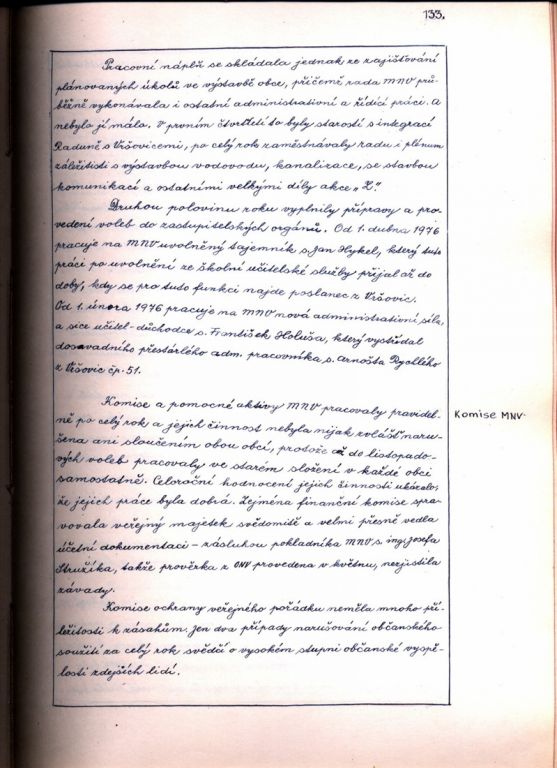 133.
Pracovní náplň se skládala jednak ze zajišťování
plánovaných úkolů ve výstavbě obce, přičemž rada MNV prů-
běžně vykonávala i ostatní administrativní a řídící práci. A
nebylo jí málo. V prvním čtvrtletí to byly starosti s integrací
Raduně s Vršovicemi, po celý rok zaměstnávaly radu i plénum
záležitosti s výstavbou vodovodu, kanalizace, se stavbou
komunikací a ostatními velkými díly akce „Z."
Druhou polovinu roku vyplnily přípravy a pro-
vedení voleb do zastupitelských orgánů. Od 1. dubna 1976
pracuje na MNV uvolněný tajemník s. Jan Hykel, který tuto
práci po uvolnění ze školní učitelské služby přijal až do
doby, kdy se pro tuto funkci najde poslanec z Vršovic.
Od 1. února 1976 pracuje na MNV nová administrativní síla,
a sice učitel-důchodce s. František Holuša, který vystřídal
dosavadního přestárlého adm. pracovníka s. Arnošta Rychlého
z Vršovic čp. 51.
Komise a pomocné aktivy MNV pracovaly pravidel-
Komise MNV.
ně po celý rok a jejich činnost nebyla nijak zvlášť naru-
šena ani sloučením obou obcí, protože až do listopado-
vých voleb pracovaly ve starém složení v každé obci
samostatně. Celoroční hodnocení jejich činnosti ukázalo,
že jejich práce byla dobrá. Zejména finanční komise spra-
vovala veřejný majetek svědomitě a velmi přesně vedla
účetní dokumentaci – zásluhou pokladníka MNV s. ing. Josefa
Stružíka, takže prověrka z ONV provedena v květnu, nezjistila
závady.
Komise ochrany veřejného pořádku neměla mnoho pří-
ležitostí k zásahům. Jen dva případy narušování občanského
soužití za celý rok svědčí o vysokém stupni občanské vyspě-
losti zdejších lidí.